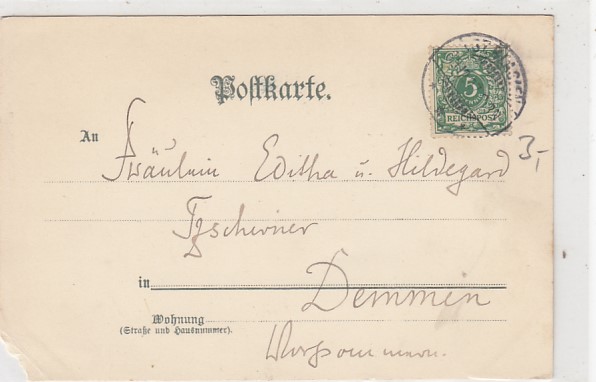 Postkarte.
5
REICHSPOST
3,-
An
Fräulein Editha u. Hildegard
Tzschirner
in Demmin
Wohnung
(Straße und Hausnummer).
Vorpommern.